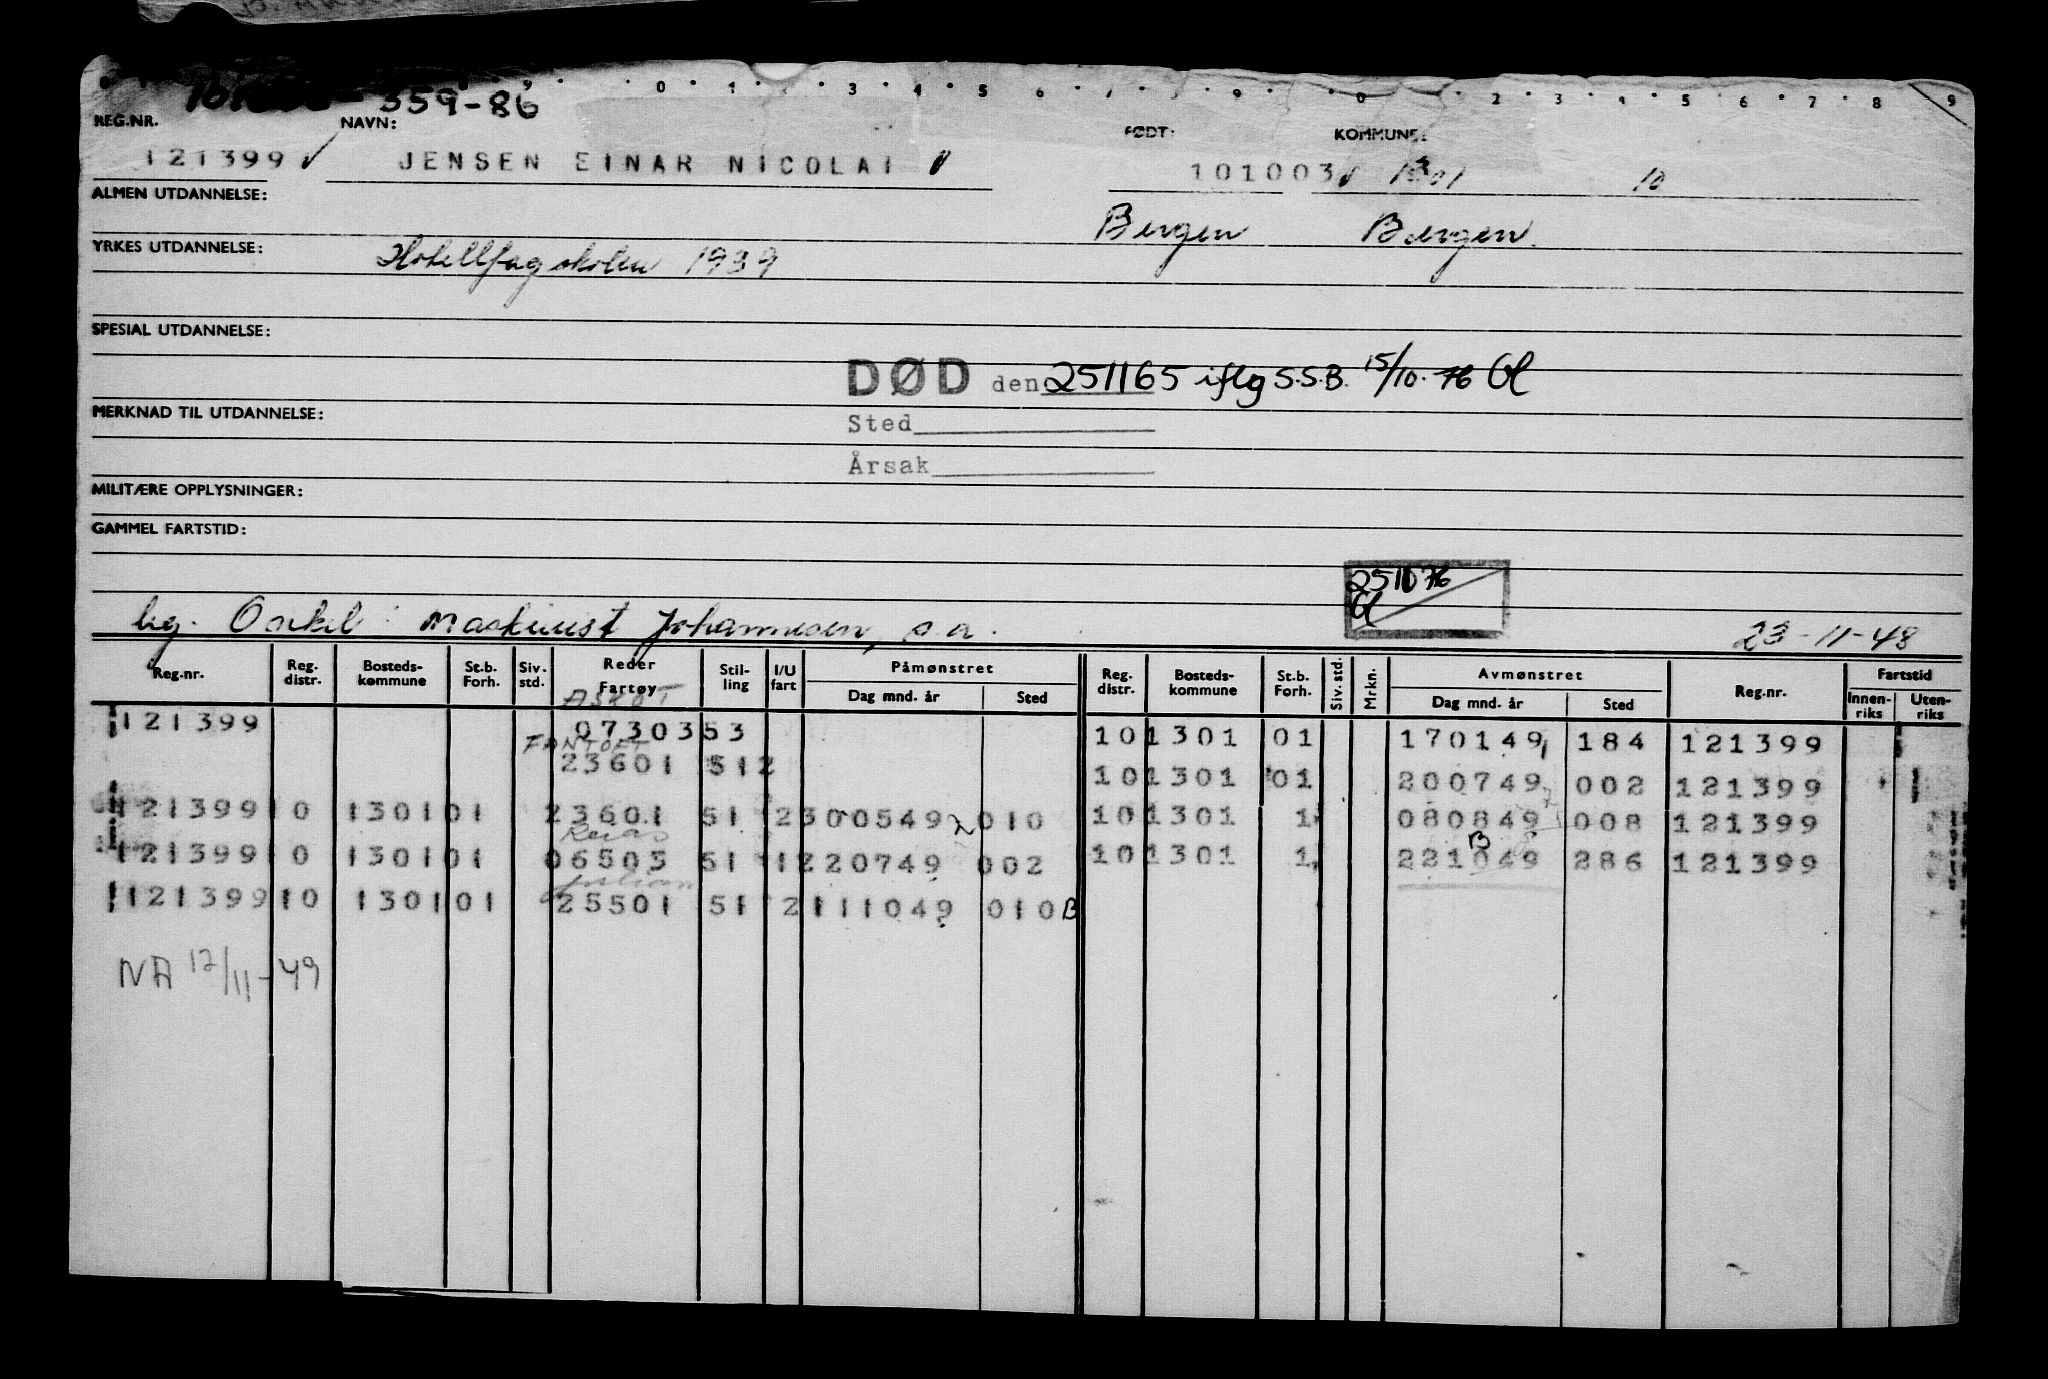 0 1 3 4 5 6 7 9 0 2 3 4 5 6 7 8 9
359-86
REG.NR. NAVN: FØDT: KOMMUNE:
121399 JENSEN EINAR NICOLAI 101003 1301 10
ALMEN UTDANNELSE:
Bergen Bergen
YRKES UTDANNELSE: Hotellfagskolen 1939
SPESIAL UTDANNELSE:
DØD den 251165 iflg S.S.B. 15/10-76
MERKNAD TIL UTDANNELSE:
Sted
Årsak
MILITÆRE OPPLYSNINGER:
GAMMEL FARTSTID:
251176
leg. Onkel: Maskinist Johannesen, s.a. 23-11-48
Reg.nr. Reg. distr. Bosteds-kommune St.b. Forh. Siv. std. Reder Fartøy Stil-ling I/U fart Påmønstret Dag mnd. år Sted Reg. distr. Bosteds-kommune St.b. Forh. Siv. std. Mrkn. Avmønstret Dag mnd. år Sted Reg.nr. Fartstid Innen-riks Uten-riks
ASKOT
121399 0730353 101301 01 170149 184 121399
FANTOFT
23601 512 101301 01 200749 002 121399
121399 10 1301 01 23601 51 2 300549 010 101301 1 080849 008 121399
121399 10 1301 01 06503 51 1 220749 002 101301 1 221049 B 286 121399
121399 10 1301 01 25501 51 2 111049 010 B
NA 17/11-49